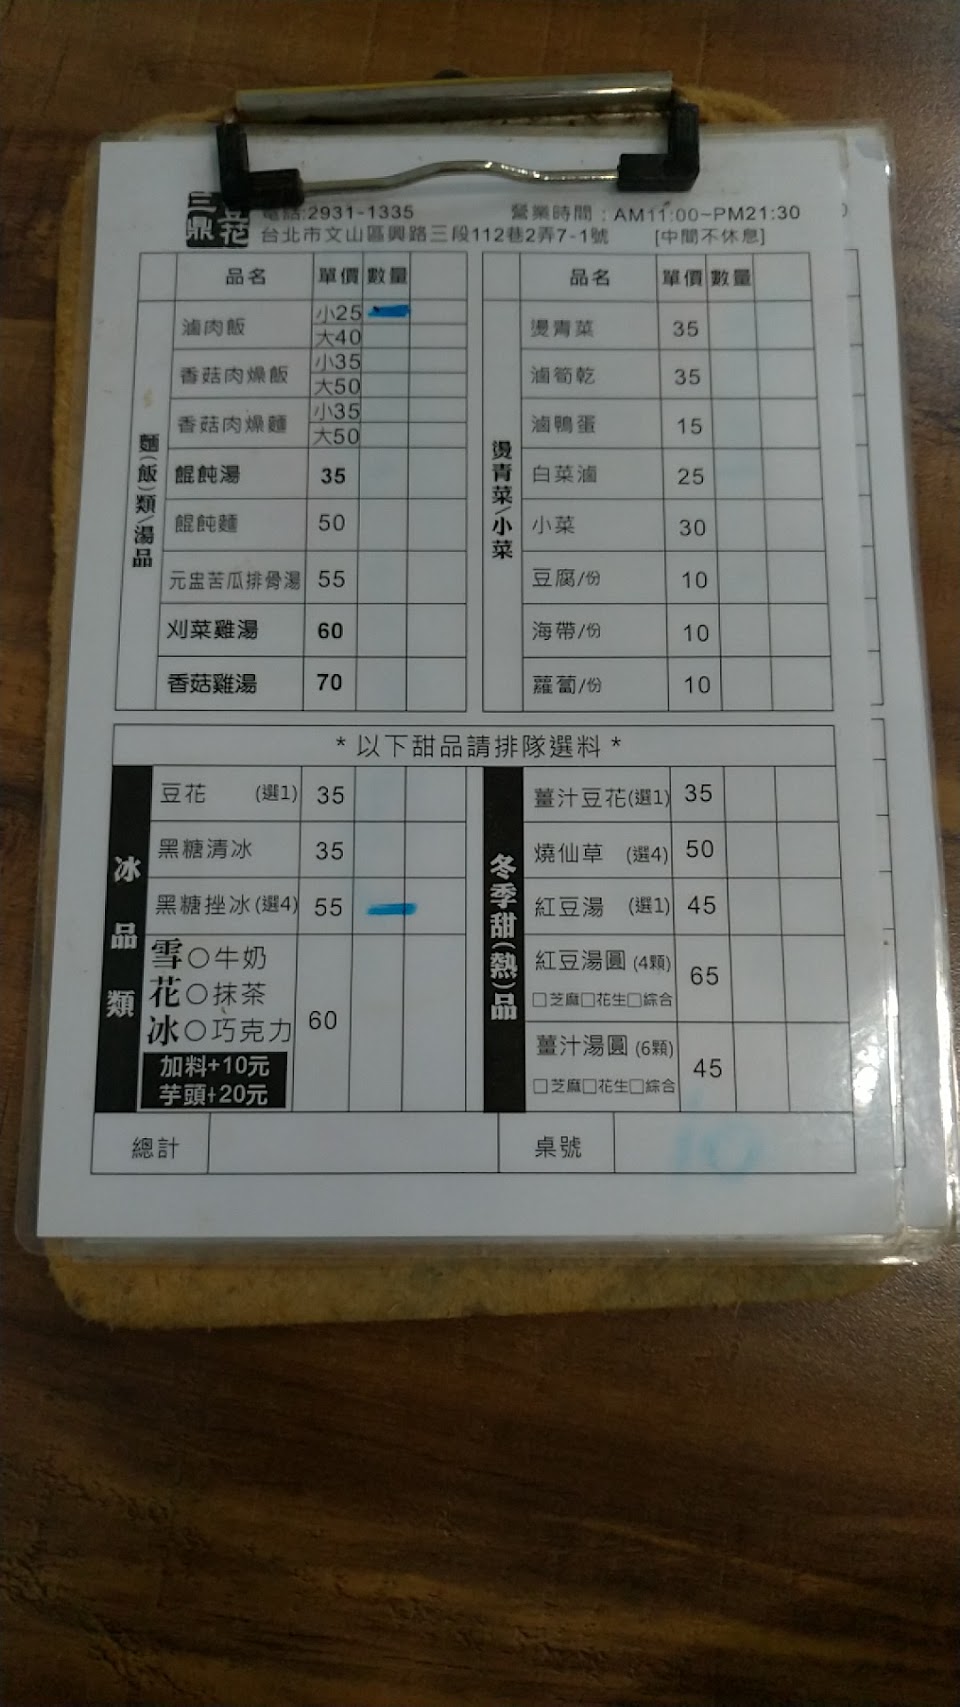 三鼎 豆花
電話:2931-1335 營業時間：AM11:00~PM21:30
台北市文山區興路三段112巷2弄7-1號 [中間不休息]
麵(飯)類/湯品
品名 單價 數量
滷肉飯 小25 一
大40
香菇肉燥飯 小35
大50
香菇肉燥麵 小35
大50
餛飩湯 35
餛飩麵 50
元盅苦瓜排骨湯 55
刈菜雞湯 60
香菇雞湯 70
燙青菜/小菜
品名 單價 數量
燙青菜 35
滷筍乾 35
滷鴨蛋 15
白菜滷 25
小菜 30
豆腐/份 10
海帶/份 10
蘿蔔/份 10
*以下甜品請排隊選料*
冰品類
豆花 (選1) 35
黑糖清冰 35
黑糖挫冰(選4) 55 一
雪花冰 60
○牛奶
○抹茶
○巧克力
加料+10元
芋頭+20元
冬季甜(熱)品
薑汁豆花(選1) 35
燒仙草 (選4) 50
紅豆湯 (選1) 45
紅豆湯圓(4顆) 65
□芝麻□花生□綜合
薑汁湯圓(6顆) 45
□芝麻□花生□綜合
總計 桌號 10